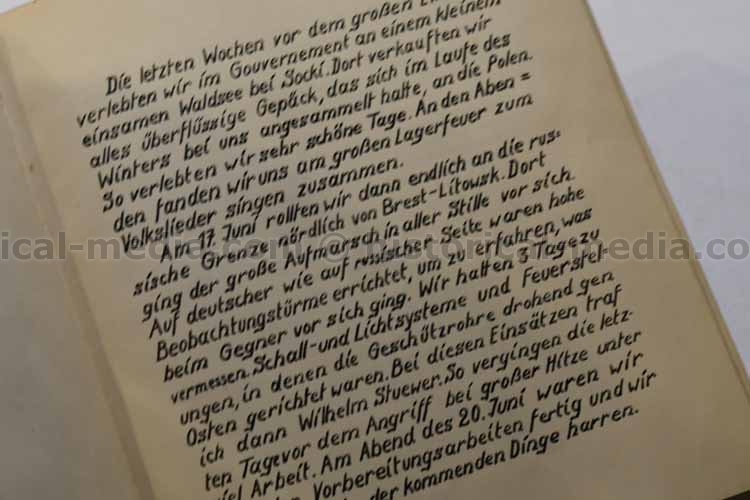 Die letzten Wochen vor dem großen
verlebten wir im Gouvernement an einem kleinem
einsamen Waldsee bei Socki. Dort verkauften wir
alles überflüssige Gepäck, das sich im Laufe des
Winters bei uns angesammelt hatte, an die Polen.
So verlebten wir sehr schöne Tage. An den Aben=
den fanden wir uns am großen Lagerfeuer zum
Volkslieder singen zusammen.
Am 17 Juni rollten wir dann endlich an die rus=
sische Grenze nördlich von Brest-Litowsk. Dort
ging der große Aufmarsch in aller Stille vor sich.
Auf deutscher wie auf russischer Seite waren hohe
Beobachtungstürme errichtet, um zu erfahren, was
beim Gegner vor sich ging. Wir hatten 3 Tage zu
vermessen. Schall-und Lichtsysteme und Feuerstel-
ungen, in denen die Geschützrohre drohend gen
Osten gerichtet waren. Bei diesen Einsätzen traf
ich dann Wilhelm Stuewer. So vergingen die letz-
ten Tage vor dem Angriff bei großer Hitze unter
viel Arbeit. Am Abend des 20. Juni waren wir
Vorbereitungsarbeiten fertig und wir
der kommenden Dinge harren.